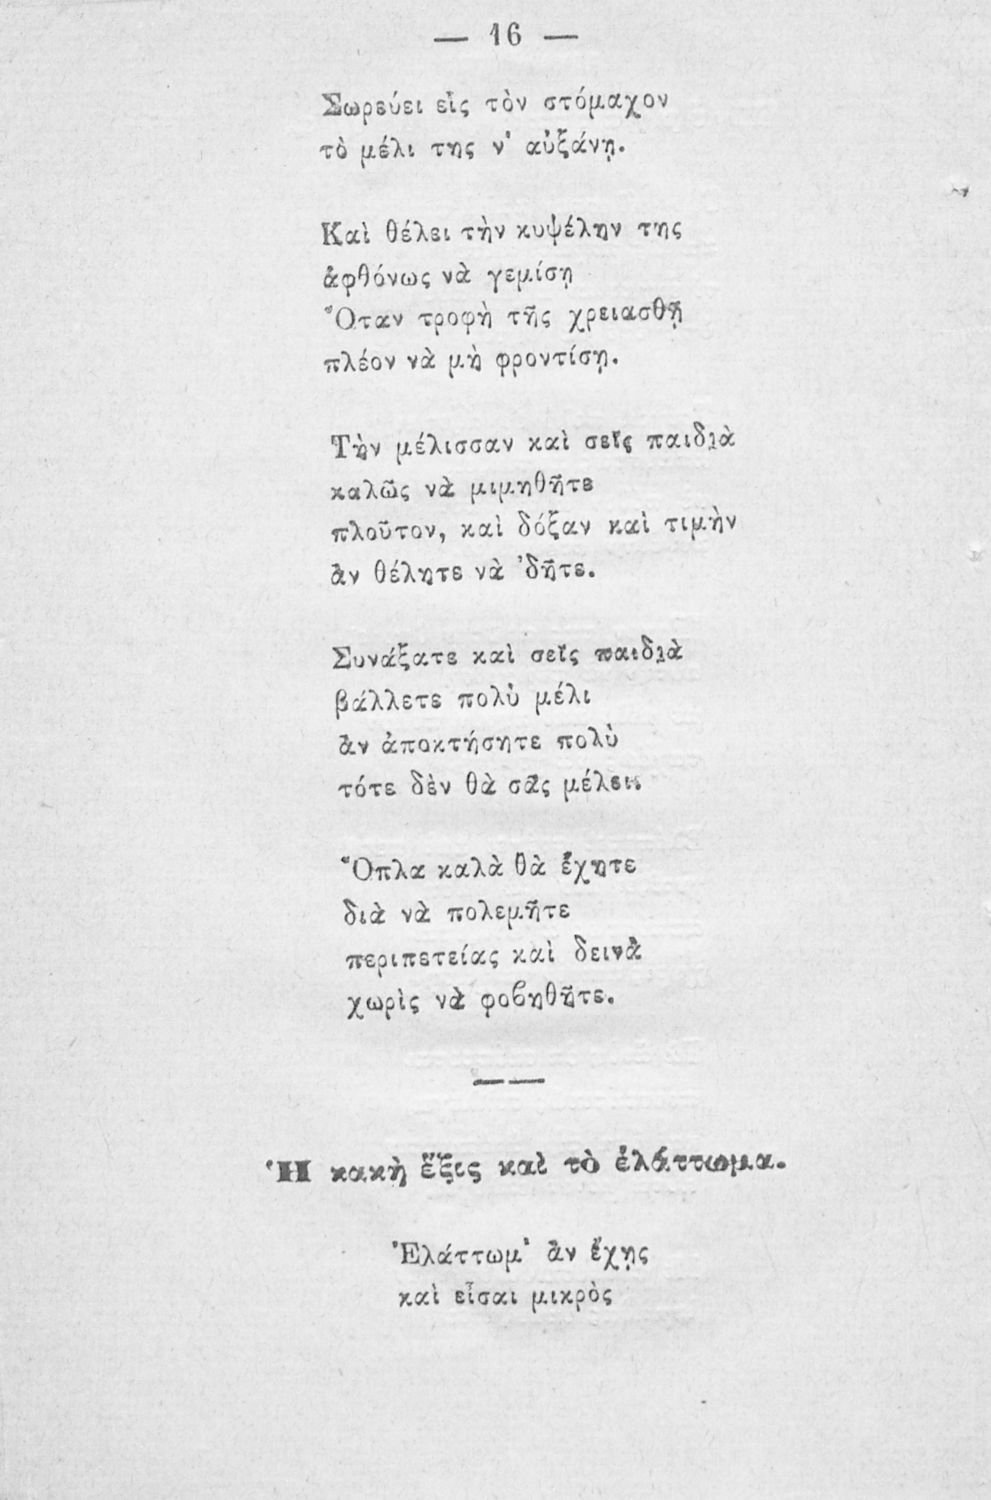 — 16 —
Σωρεύει εἰς τὸν στόμαχον
τὸ μέλι της ν' αὐξάνῃ.
Καὶ θέλει τὴν κυψέλην της
ἀφθόνως νὰ γεμίσῃ
Ὅταν τροφὴ τῆς χρειασθῇ
πλέον νὰ μὴ φροντίσῃ.
Τὴν μέλισσαν καὶ σεῖς παιδιὰ
καλῶς νὰ μιμηθῆτε
πλοῦτον, καὶ δόξαν καὶ τιμὴν
ἂν θέλητε νὰ 'δῆτε.
Συνάξατε καὶ σεῖς παιδιὰ
βάλλετε πολὺ μέλι
ἂν ἀποκτήσητε πολὺ
τότε δὲν θὰ σᾶς μέλει.
Ὅπλα καλὰ θὰ ἔχητε
διὰ νὰ πολεμῆτε
περιπετείας καὶ δεινὰ
χωρὶς νὰ φοβηθῆτε.
Ἡ κακὴ ἕξις καὶ τὸ ἐλάττωμα.
Ἐλάττωμ' ἂν ἔχῃς
καὶ εἶσαι μικρὸς